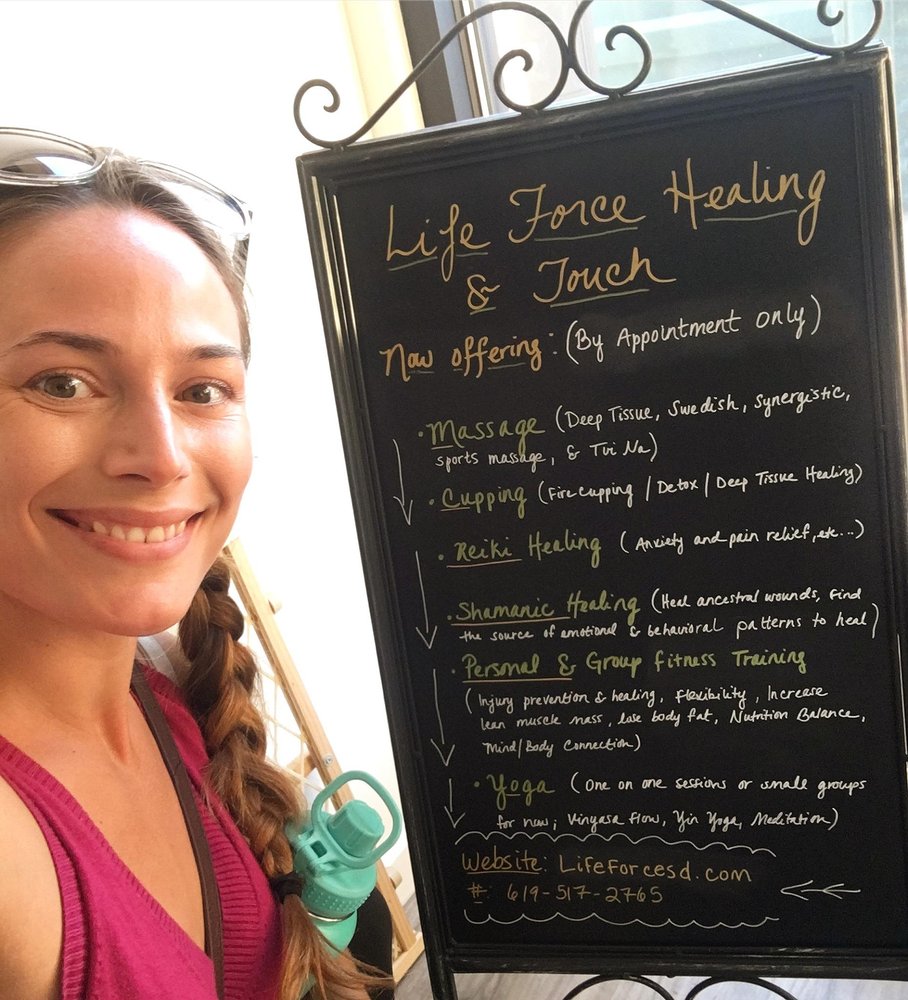 Life Force Healing
& Touch
Now offering: (By Appointment only)
• Massage (Deep Tissue, Swedish, synergistic,
sports massage, & Tui Na)
• Cupping (Fire cupping / Detox / Deep Tissue Healing)
• Reiki Healing (Anxiety and pain relief, etc...)
• Shamanic Healing (Heal ancestral wounds, find
the source of emotional & behavioral patterns to heal)
• Personal & Group Fitness Training
(Injury prevention & healing, flexibility, Increase
lean muscle mass, lose body fat, Nutrition Balance,
Mind/Body Connection)
• Yoga (One on one sessions or small groups
for now; Vinyasa Flow, Yin Yoga, Meditation)
Website: Lifeforcesd.com
#: 619-517-2765